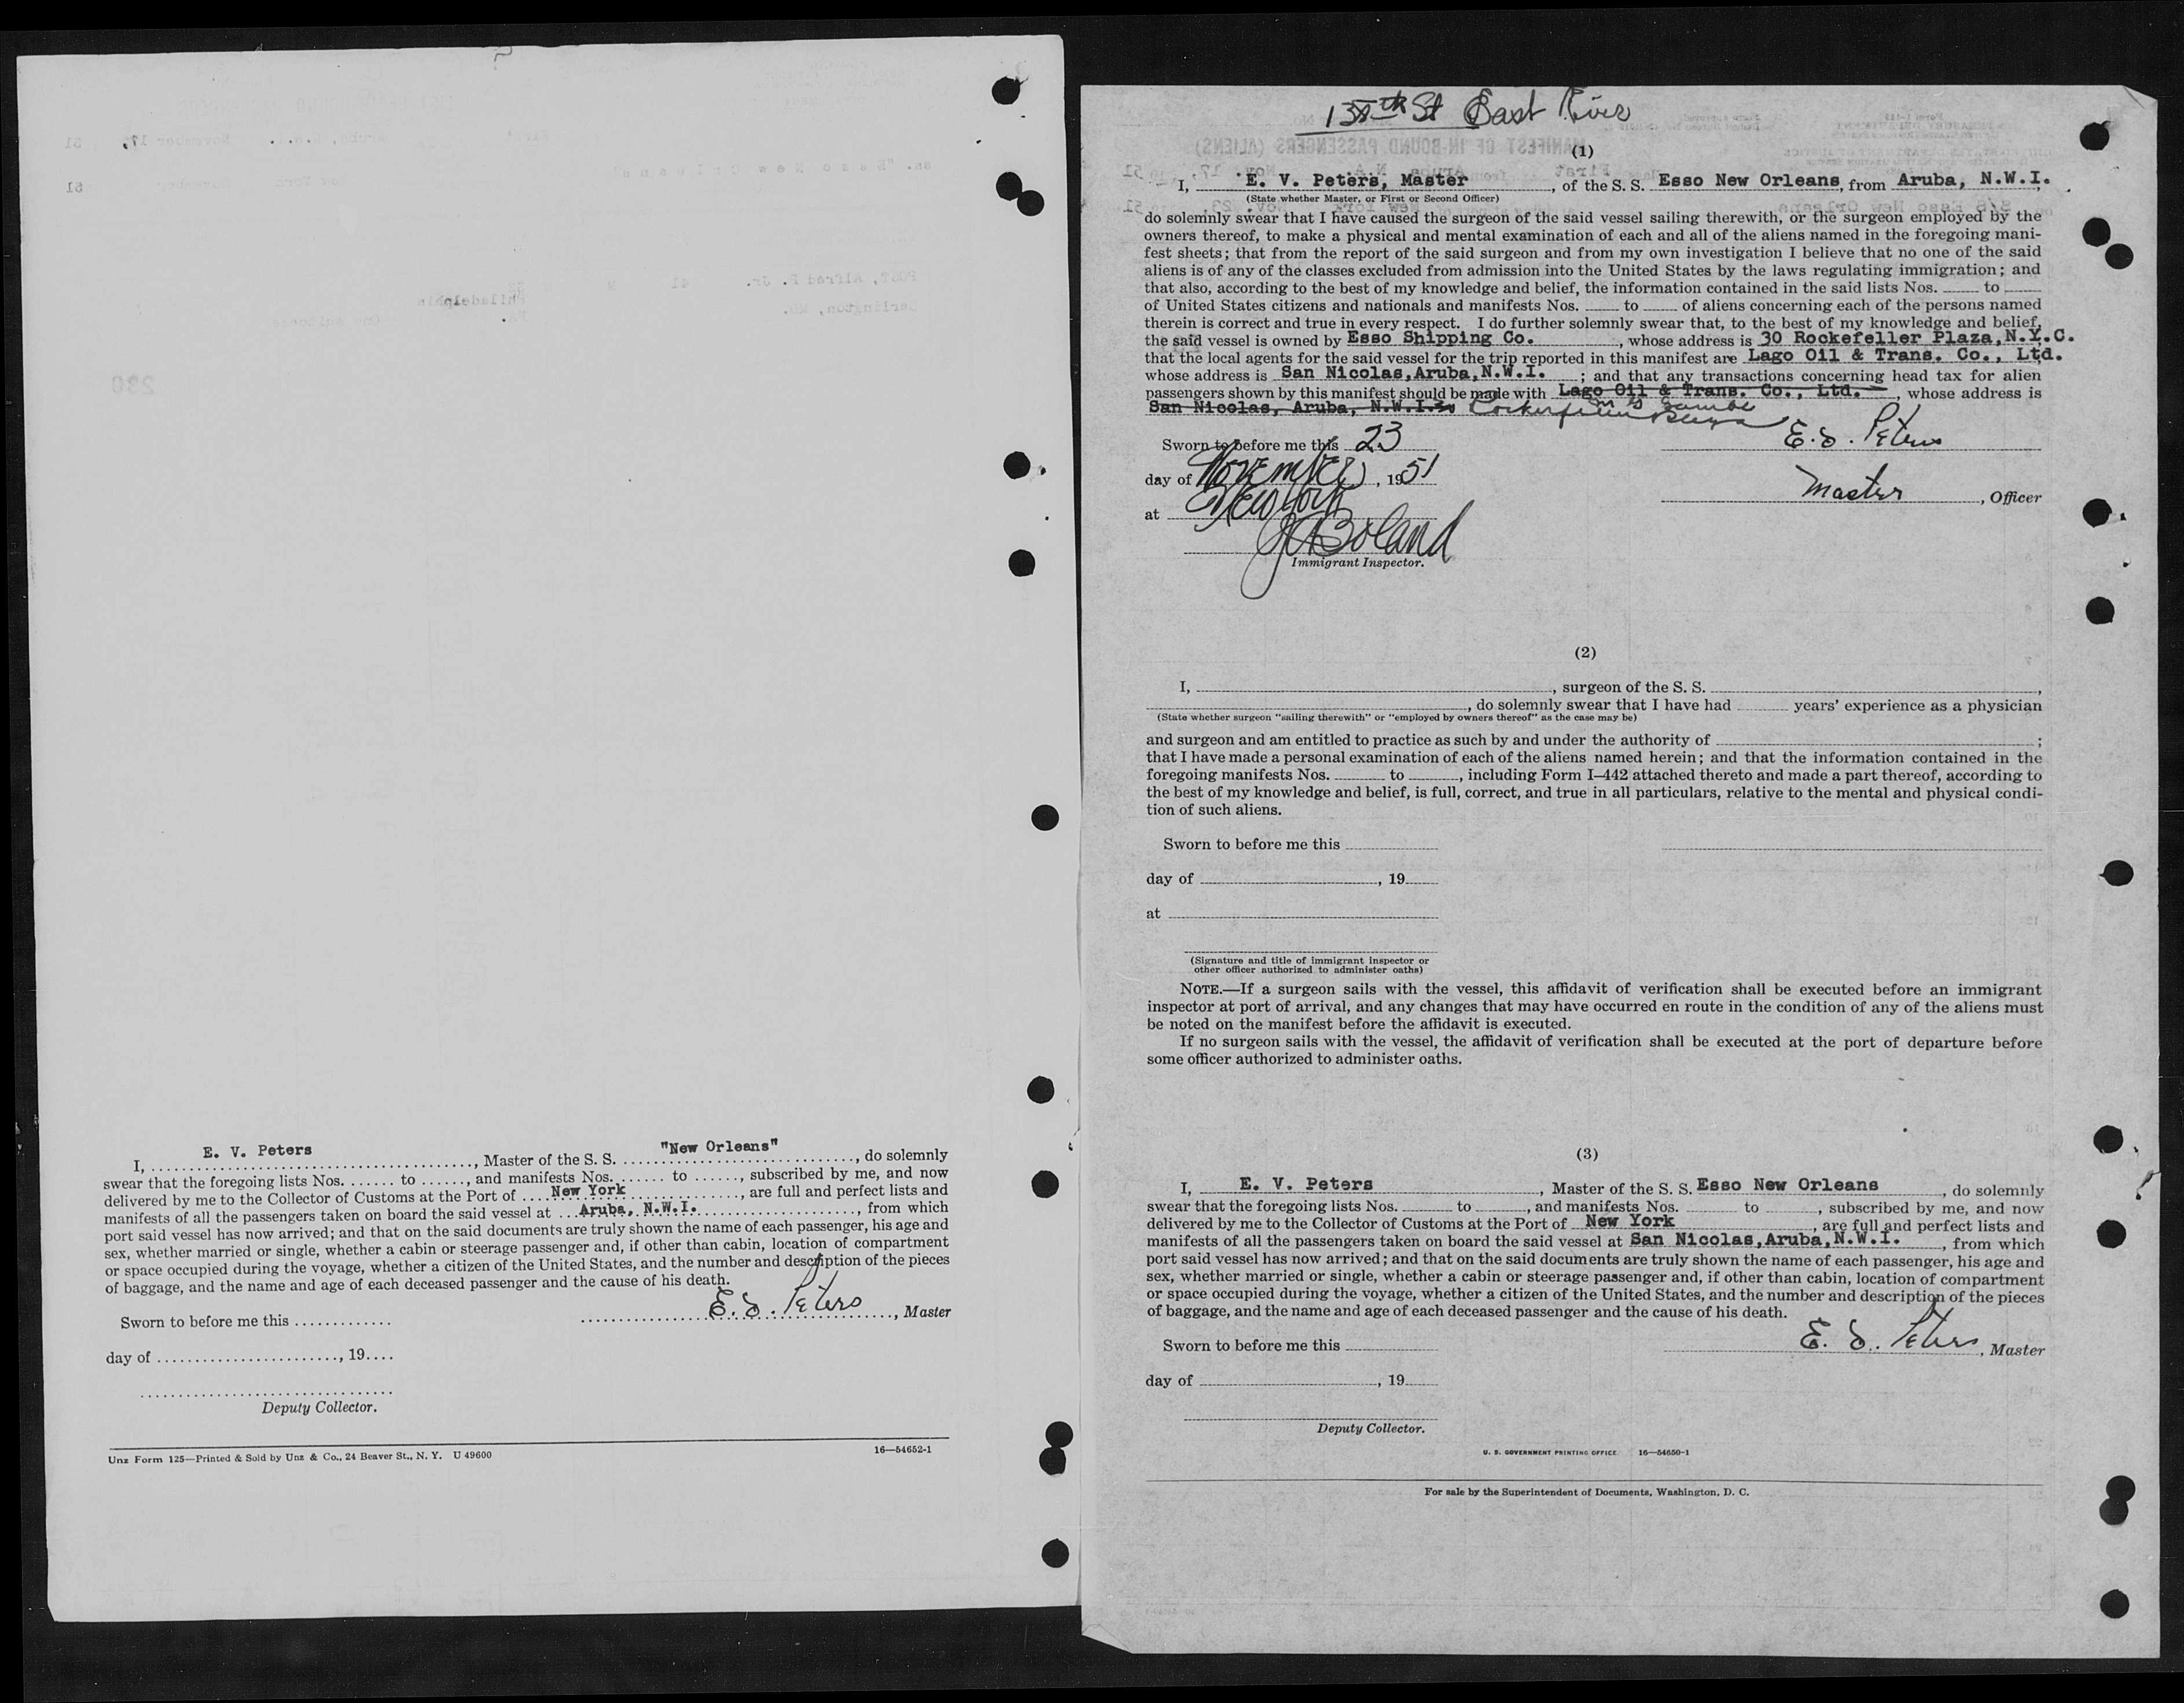 E. V. Peters "New Orleans"
I, ........................................, Master of the S. S. ............................., do solemnly
swear that the foregoing lists Nos. ....... to ......, and manifests Nos. ....... to ......, subscribed by me, and now
delivered by me to the Collector of Customs at the Port of .... New York ..............., are full and perfect lists and
manifests of all the passengers taken on board the said vessel at ... Aruba, N.W.I. ...................., from which
port said vessel has now arrived; and that on the said documents are truly shown the name of each passenger, his age and
sex, whether married or single, whether a cabin or steerage passenger and, if other than cabin, location of compartment
or space occupied during the voyage, whether a citizen of the United States, and the number and description of the pieces
of baggage, and the name and age of each deceased passenger and the cause of his death.
Sworn to before me this .............
E. V. Peters, Master
day of ........................, 19....
Deputy Collector.
Unz Form 125—Printed & Sold by Unz & Co., 24 Beaver St., N. Y. U 49600 16—54652-1
138th St East River
(1)
I, E. V. Peters, Master, of the S. S. Esso New Orleans, from Aruba, N.W.I.
(State whether Master, or First or Second Officer)
do solemnly swear that I have caused the surgeon of the said vessel sailing therewith, or the surgeon employed by the
owners thereof, to make a physical and mental examination of each and all of the aliens named in the foregoing mani-
fest sheets; that from the report of the said surgeon and from my own investigation I believe that no one of the said
aliens is of any of the classes excluded from admission into the United States by the laws regulating immigration; and
that also, according to the best of my knowledge and belief, the information contained in the said lists Nos. ____ to ____
of United States citizens and nationals and manifests Nos. ____ to ____ of aliens concerning each of the persons named
therein is correct and true in every respect. I do further solemnly swear that, to the best of my knowledge and belief,
the said vessel is owned by Esso Shipping Co., whose address is 30 Rockefeller Plaza, N.Y.C.
that the local agents for the said vessel for the trip reported in this manifest are Lago Oil & Trans. Co., Ltd.
whose address is San Nicolas, Aruba, N.W.I. ; and that any transactions concerning head tax for alien
passengers shown by this manifest should be made with Lago Oil & Trans. Co., Ltd., whose address is
San Nicolas, Aruba, N.W.I.
Sworn to before me this 23
E. V. Peters
day of November, 1951
Master, Officer
at New York
J A Boland
Immigrant Inspector.
(2)
I, ____, surgeon of the S. S. ____,
____, do solemnly swear that I have had ____ years' experience as a physician
(State whether surgeon "sailing therewith" or "employed by owners thereof" as the case may be)
and surgeon and am entitled to practice as such by and under the authority of ____;
that I have made a personal examination of each of the aliens named herein; and that the information contained in the
foregoing manifests Nos. ____ to ____, including Form I-442 attached thereto and made a part thereof, according to
the best of my knowledge and belief, is full, correct, and true in all particulars, relative to the mental and physical condi-
tion of such aliens.
Sworn to before me this ____
day of ____, 19____
at ____
(Signature and title of immigrant inspector or
other officer authorized to administer oaths)
NOTE.—If a surgeon sails with the vessel, this affidavit of verification shall be executed before an immigrant
inspector at port of arrival, and any changes that may have occurred en route in the condition of any of the aliens must
be noted on the manifest before the affidavit is executed.
If no surgeon sails with the vessel, the affidavit of verification shall be executed at the port of departure before
some officer authorized to administer oaths.
(3)
I, E. V. Peters, Master of the S. S. Esso New Orleans, do solemnly
swear that the foregoing lists Nos. ____ to ____, and manifests Nos. ____ to ____, subscribed by me, and now
delivered by me to the Collector of Customs at the Port of New York, are full and perfect lists and
manifests of all the passengers taken on board the said vessel at San Nicolas, Aruba, N.W.I., from which
port said vessel has now arrived; and that on the said documents are truly shown the name of each passenger, his age and
sex, whether married or single, whether a cabin or steerage passenger and, if other than cabin, location of compartment
or space occupied during the voyage, whether a citizen of the United States, and the number and description of the pieces
of baggage, and the name and age of each deceased passenger and the cause of his death.
Sworn to before me this ____
E. V. Peters, Master
day of ____, 19____
Deputy Collector.
U. S. GOVERNMENT PRINTING OFFICE 16—54650-1
For sale by the Superintendent of Documents, Washington, D. C.